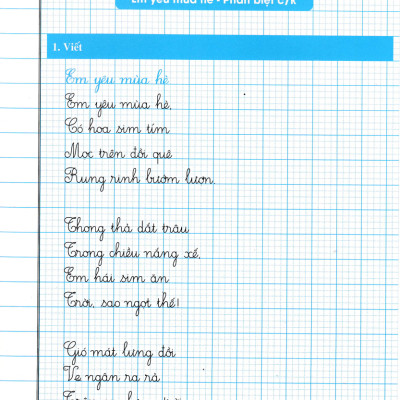 Em yêu mùa hè - Phân biệt c/k
1. Viết
Em yêu mùa hè
Em yêu mùa hè,
Có hoa sim tím
Mọc trên đồi quê
Rung rinh bướm lượn.
Thong thả dắt trâu
Trong chiều nắng xế,
Em hái sim ăn
Trời, sao ngọt thế!
Gió mát lưng đồi
Ve ngân ra rả